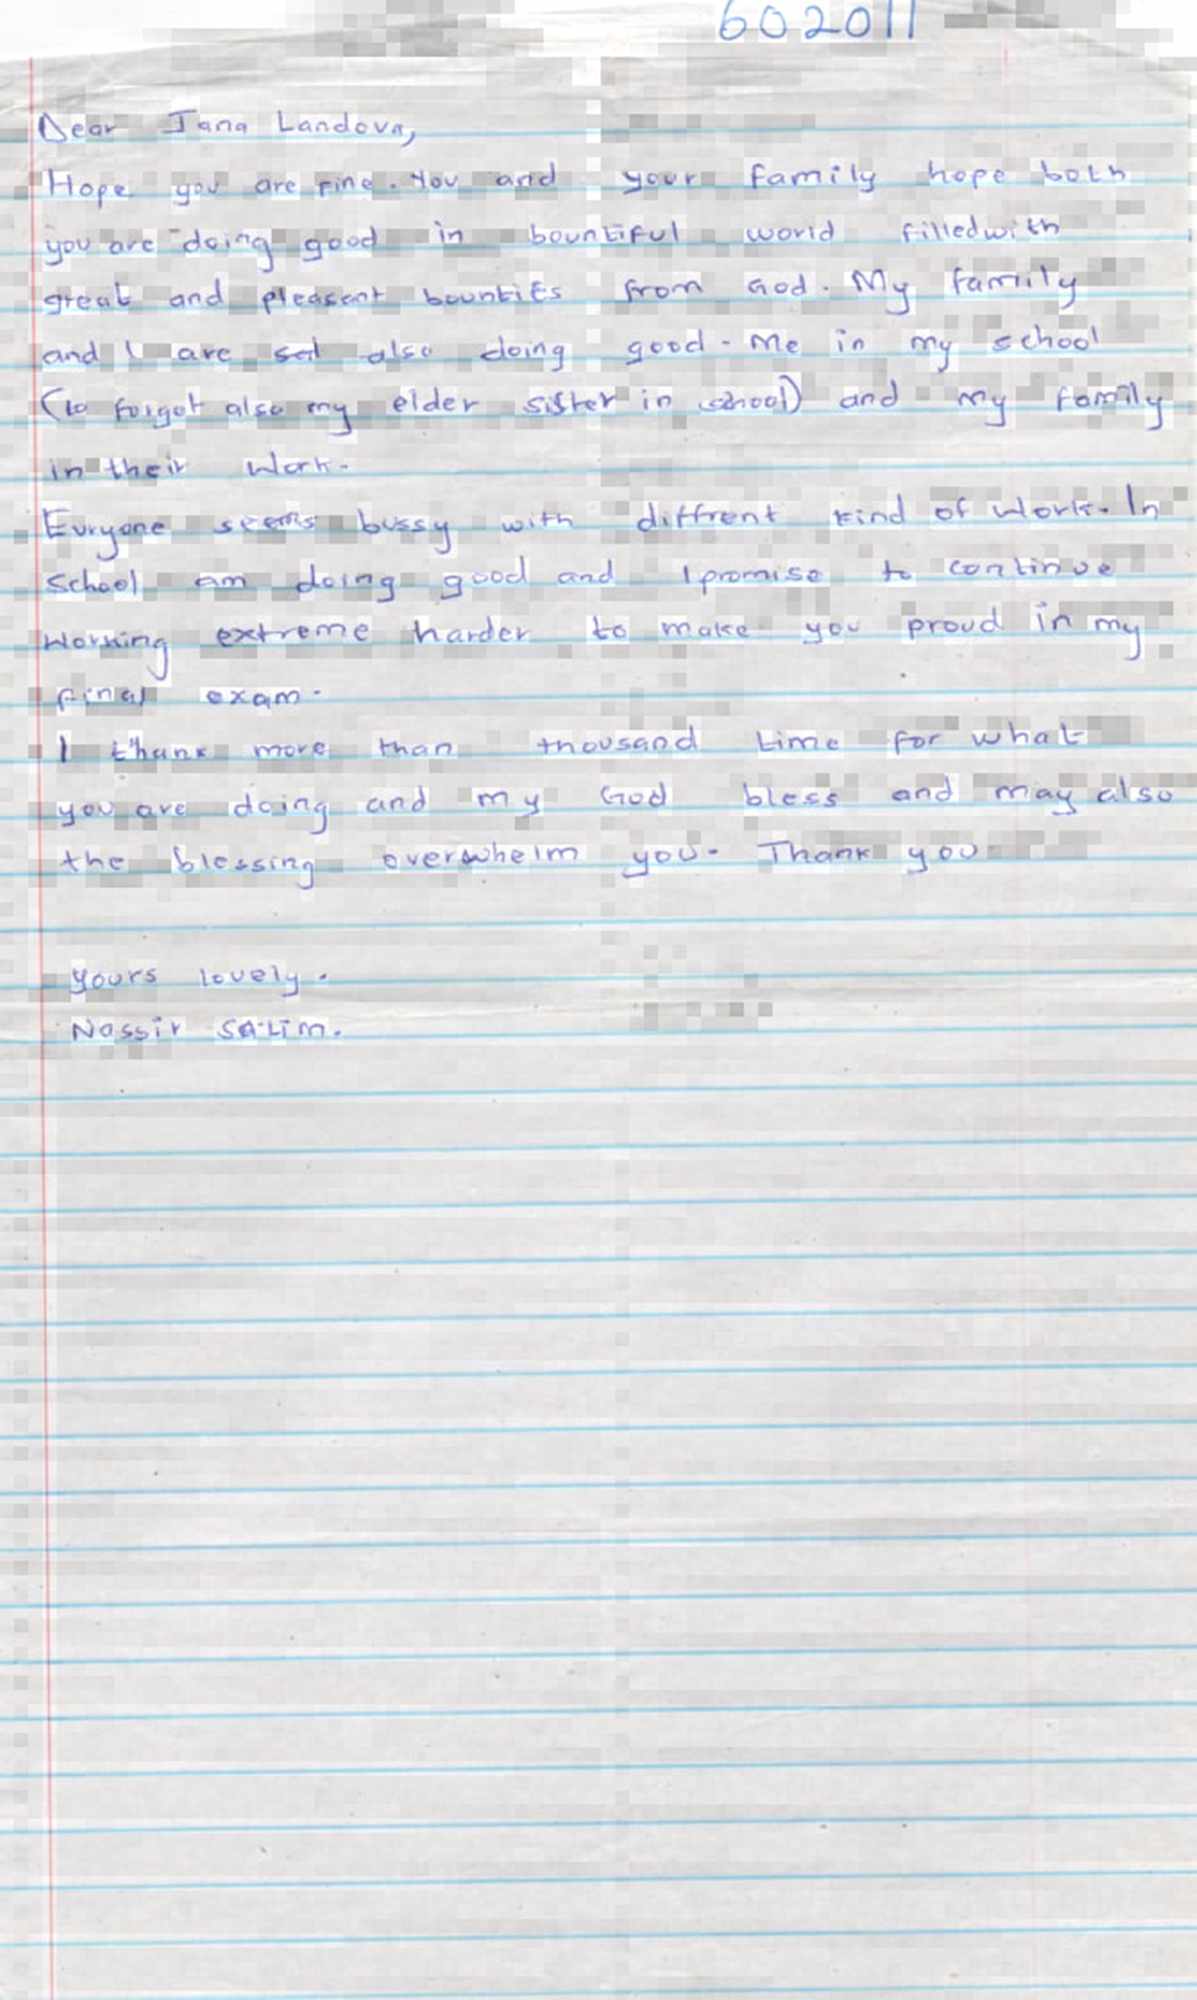 602011
Dear Jana Landova,
Hope you are fine. You and your family hope both
you are doing good in bountiful world filledwith
great and pleasent bounties from God. My family
and I are also doing good. Me in my school
(to forgot also my elder sister in school) and my family
in their work.
Euryone seems bussy with diffrent kind of work. In
school am doing good and I promise to continue
working extreme harder to make you proud in my
final exam.
I thank more than thousand time for what
you are doing and my God bless and may also
the blessing overwhelm you. Thank you
yours lovely.
Nassir Salim.